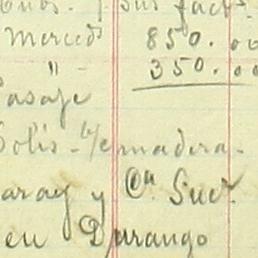 sus fact
Merced 850.00
" 350.00
Pasaje
Solis - b/e madera.
aray y Ca Sucr
en Durango